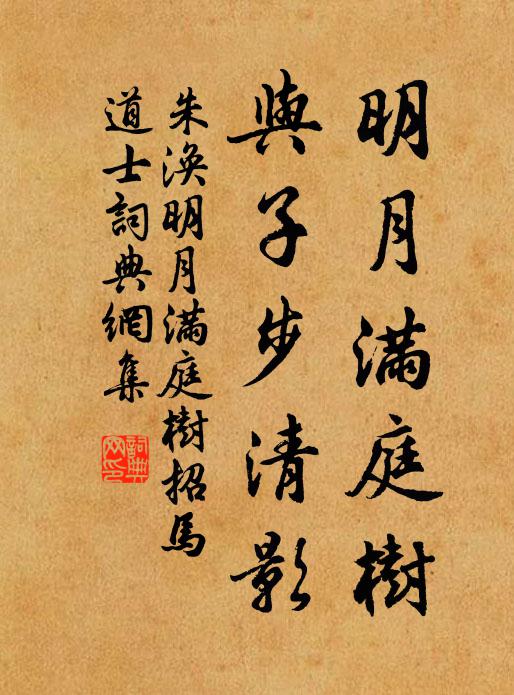 明月滿庭樹
與子步清影
朱渙明月滿庭樹招馬
道士詞典網集
詞典网印